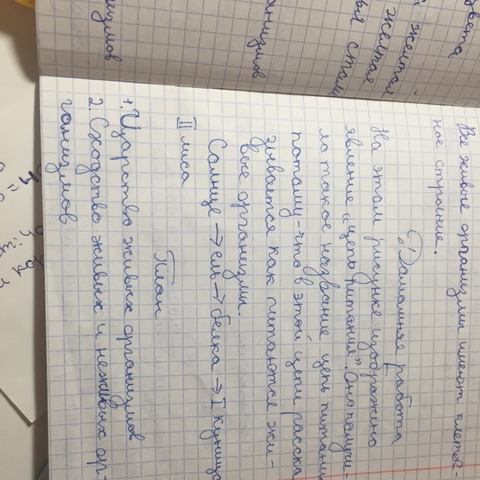 Все живые организмы имеют клеточ-
ное строение.
Домашняя работа
На этом рисунке изображено
явление "цепь питания". Оно получи-
ло такое название цепь питания
потому-что в этой цепи расска
зывается как питаются жи-
вые организмы.
Солнце → ель → белка → I Куница
II лиса
План
1. Царство живых организмов
2 Сходство живых и неживых ор-
ганизмов